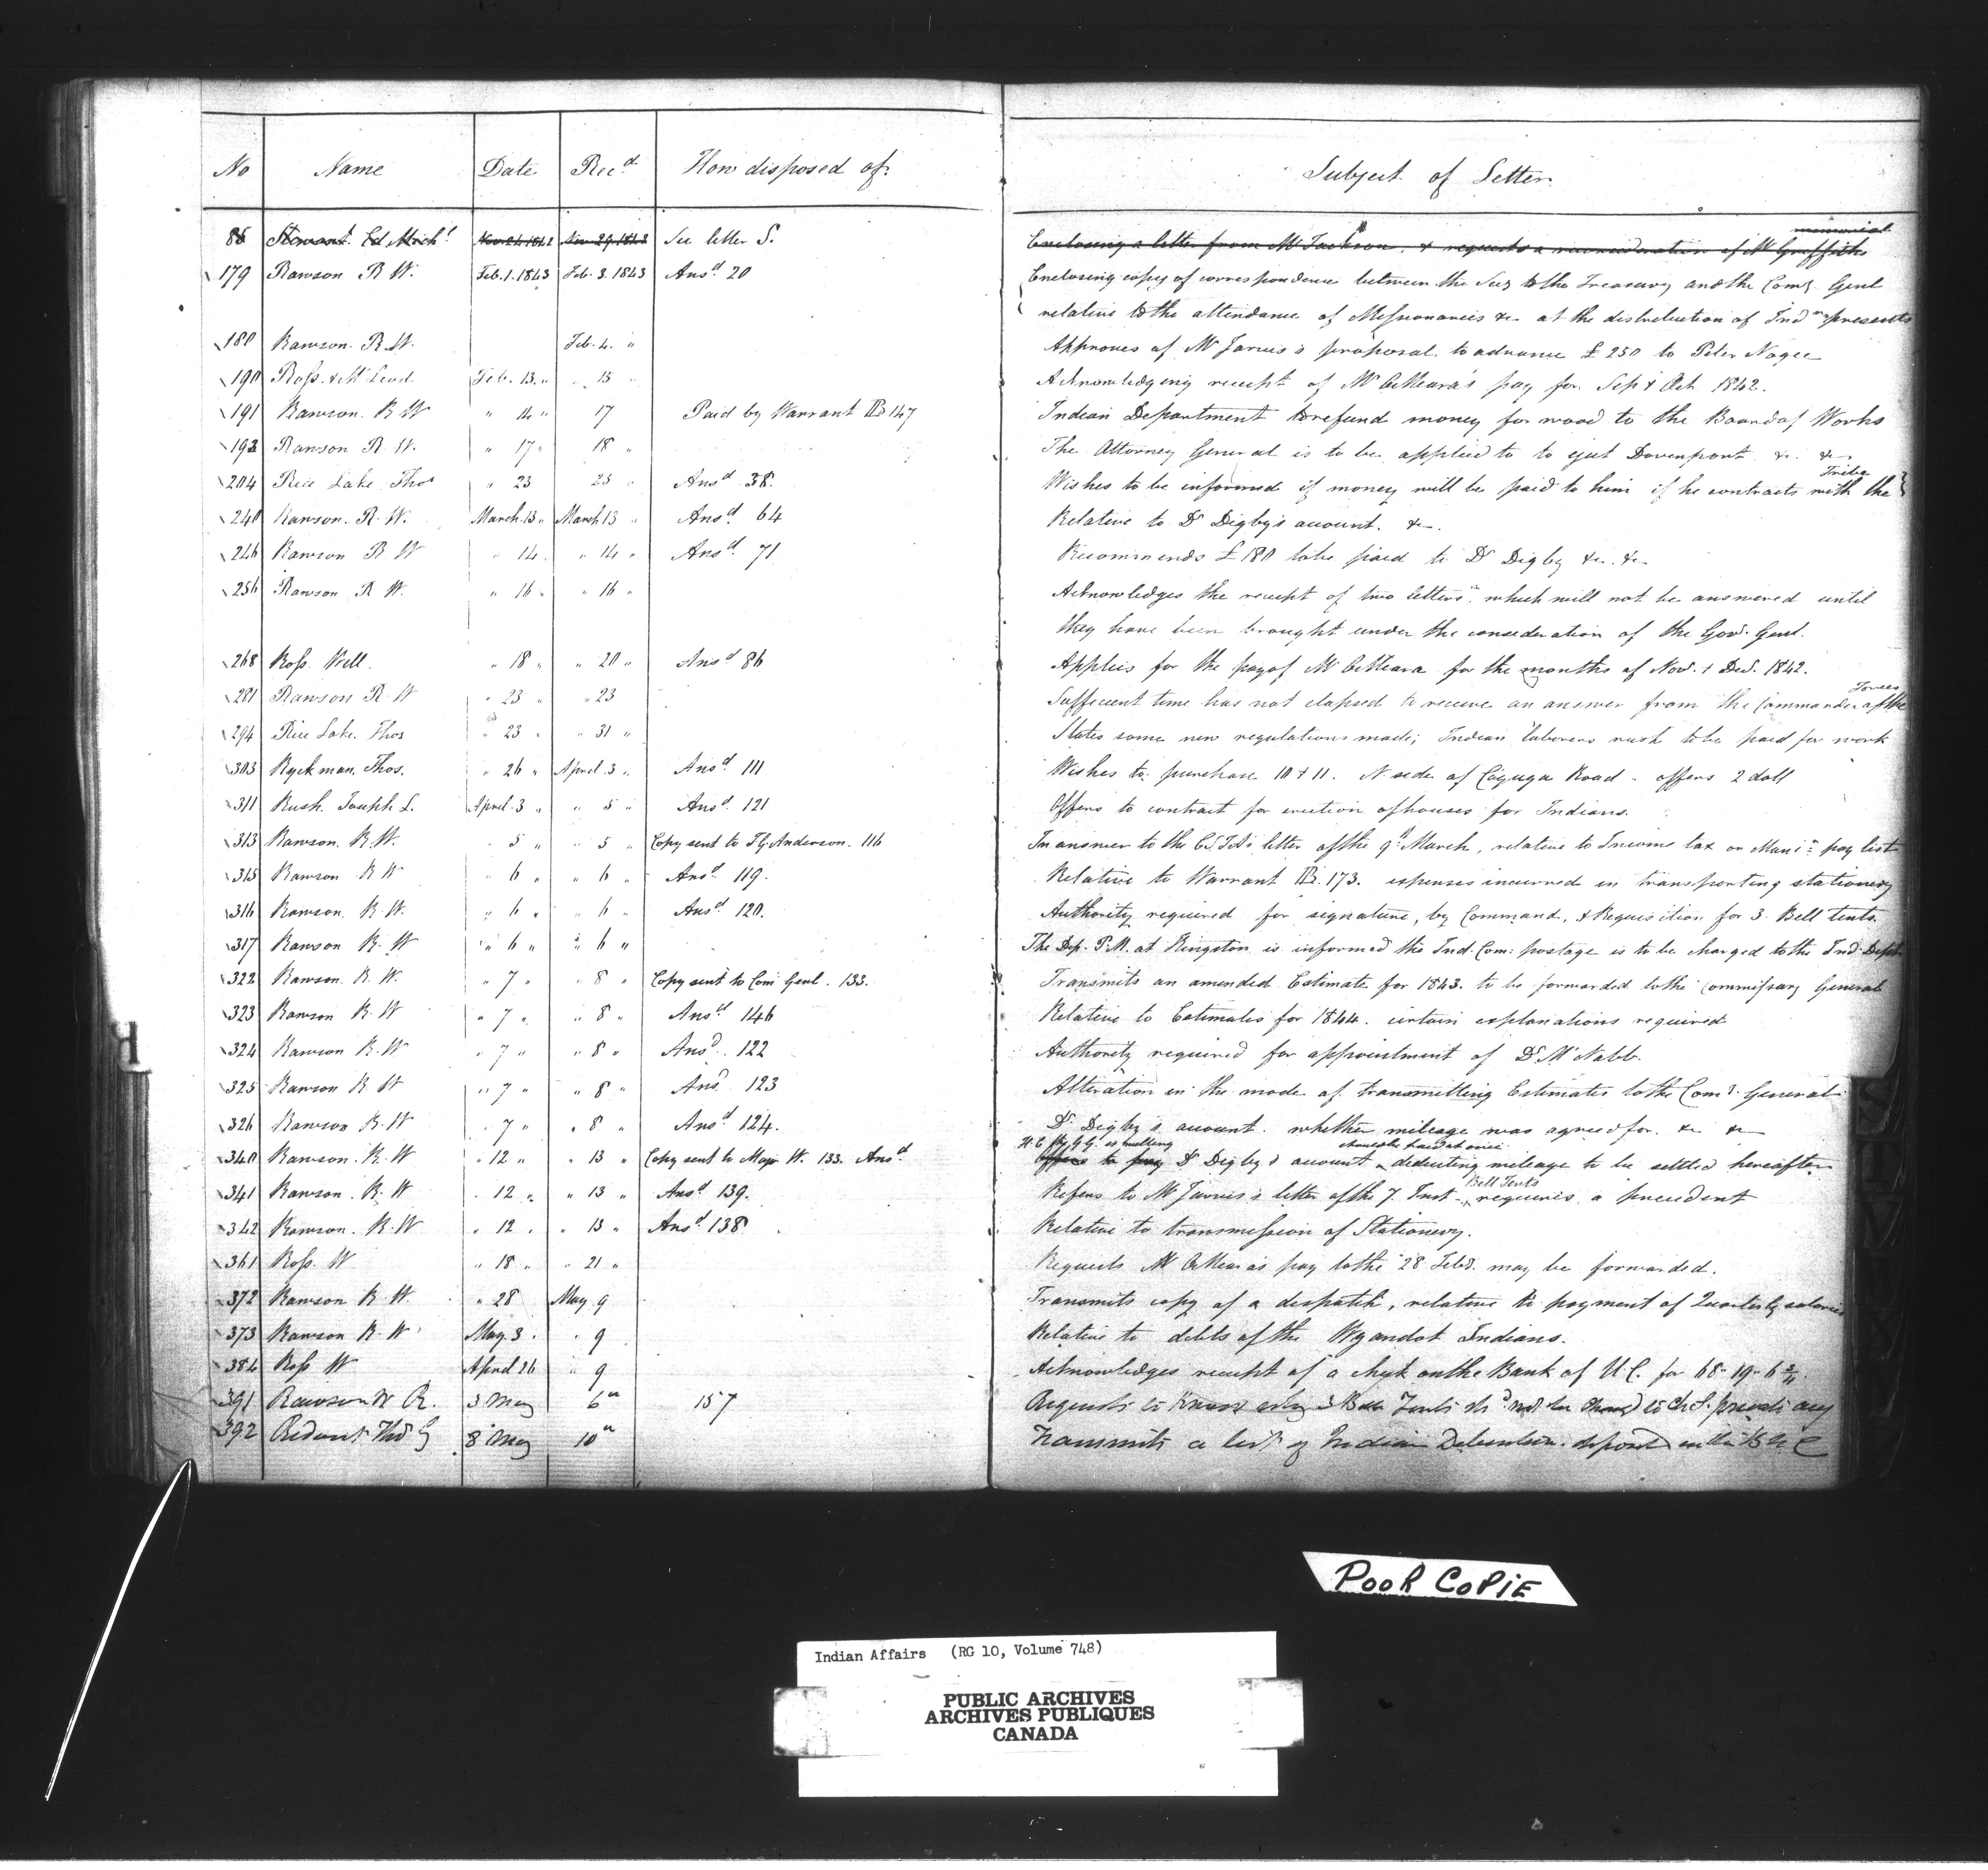 No Name Date Rec^d How disposed of. Subject of Letter.
86 Stewart Ed Mich^l Nov 24 1842 Nov 29 1842 See letter S. Enclosing a letter from Mr Jackson, & requests a reconsideration of Mr Griffiths memorial
179 Rawson R W. Feb. 1. 1843 Feb. 3. 1843 Ans^d 20 Enclosing copy of correspondence between the Sec^y to the Treasury and the Com^y Genl
relative to the attendance of Missionaries &c at the distribution of Ind^n presents
180 Rawson. R. W. Feb. 4. " Approves of Mr Jarvis's proposal to advance £250 to Peter Nogee
190 Ross & McLeod Feb. 13. " " 15 " Acknowledging receipt of Mr OMeara's pay for Sep & Oct 1842.
191 Rawson. R W " 14 " 17 Paid by Warrant No 147 Indian Department to refund money for wood to the Board of Works
193 Rawson R W. " 17 " 18 " The Attorney General is to be applied to to eject Davenport &c. &c
204 Rice Lake Thos " 23 25 " Ans^d 38. Wishes to be informed if money will be paid to him if he contracts with the Tribe
240 Rawson. R. W. March. 13 " March 13 " Ans^d 64 Relative to Dr Digby's account. &c.
246 Rawson R W " 14. " 14 " Ans^d 71 Recommends £180 to be paid to Dr Digby &c. &c.
256 Rawson R W. " 16 " " 16 " Acknowledges the receipt of two letters, which will not be answered until
they have been brought under the consideration of the Gov. Genl.
268 Ross. Will. " 18 " " 20 " Ans^d 86 Applies for the pay of Mr OMeara for the months of Nov. & Dec. 1842.
281 Rawson R. W " 23 " " 23 Sufficient time has not elapsed to receive an answer from the Commander of the Forces
294 Rice Lake. Thos " 23 " " 31 " States some new regulations made; Indian laborers wish to be paid for work
303 Ryckman. Thos. " 26 " April. 3 " Ans^d 111 Wishes to purchase 10 & 11. N side of Cayuga Road - offers 2 doll
311 Rush. Joseph L. April. 3 " " 5 " Ans^d 121 Offers to contract for erection of houses for Indians.
313 Rawson. R. W. 5 " " 5 " Copy sent to T.G. Anderson. 116 In answer to the letter of the 9th March, relative to Income tax on pay list
315 Rawson R W " 6 " " 6 " Ans^d 119. Relative to Warrant No. 173. expenses incurred in transporting stationery
316 Rawson. R. W. " 6 " " 6 " Ans^d 120. Authority required for signature, by Command, & Requisition for 3 Bell tents.
317 Rawson R. W " 6 " " 6 " The Dep. P.M. at Kingston is informed the Ind. Com: postage is to be charged to the Ind Dept
322 Rawson. R. W. " 7 " " 8 " Copy sent to Com Genl. 133. Transmits an amended Estimate for 1843. to be forwarded to the Commissary General
323 Rawson R. W " 7 " " 8 " Ans^d 146 Relative to Estimates for 1844. certain explanations required
324 Rawson R. W " 7 " " 8 " Ans^d. 122 Authority required for appointment of Dr McNabb.
325 Rawson R. W " 7 " " 8 " Ans^d 123 Alteration in the mode of transmitting Estimates to the Com^y General
326 Rawson R. W " 7 " " 8 " Ans^d 124. Dr Digby's account. whether mileage was agreed for. &c &c
340 Rawson. R. W " 12 " " 13 " Copy sent to Major W. 133. Ans^d H. E. Offers to pay Dr Digby's account deducting mileage to be settled hereafter
341 Rawson. R. W " 12 " " 13 " Ans^d 139. Refers to Mr Jarvis's letter of the 7. Inst - Bell Tents requires a precedent
342 Rawson. R. W " 12 " " 13 " Ans^d 138 Relative to transmission of Stationery.
361 Ross. W. " 18 " " 21 " Requests Mr OMeara's pay to the 28 Feby. may be forwarded.
372 Rawson R W. " 28 May. 9 Transmits copy of a despatch, relative to payment of Quarterly salaries
373 Rawson R. W May. 3. " 9 Relative to debts of the Wyandot Indians.
384 Ross W April 26 " 9 Acknowledges receipt of a cheque on the Bank of U.C. for 68-19-6 3/4
391 Rawson W R. 3 May 6 " 157 Requests to know why 3 Bell Tents
392 Ridout Thos G 8 May 10 " Transmits a list of Indian Debentures deposited in the B U C
POOR COPIE
Indian Affairs (RG 10, Volume 748)
PUBLIC ARCHIVES
ARCHIVES PUBLIQUES
CANADA